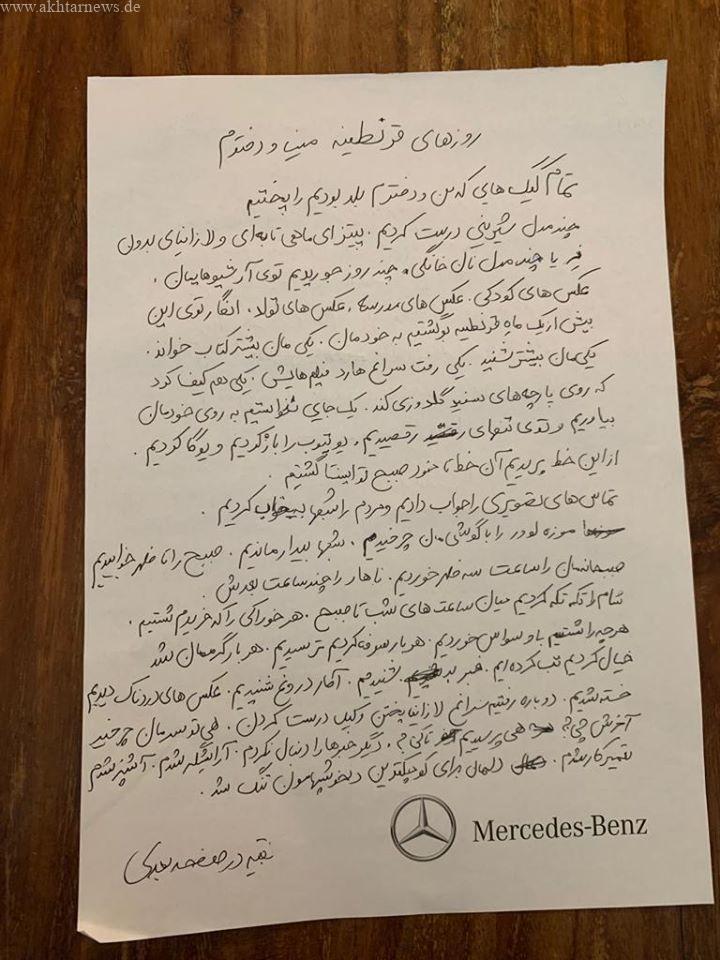 www.akhtarnews.de
روزهای قرنطینه من و دخترم
تمام کیک هایی که من و دخترم بلد بودیم را پختیم
چند مدل شیرینی درست کردیم. پیتزای ماهی تابه‌ای و لازانیای بدون
فر یا چند مدل نان خانگی. چند روز خوردیم توی آرشیوهایمان.
عکس های کودکی. عکس های مدرسه، عکس های تولد، انگار توی این
بیش از یک ماه قرنطینه برگشتیم به خودمان. یکی مان بیشتر کتاب خواند.
یکی مان بیشتر شنید. یکی رفت سراغ هارد فیلم هایش. یکی هم کیف کرد
که روی پارچه های سفید گلدوزی کند. یک جایی نخواستیم به روی خودمان
بیاوریم و توی تنهایی رقصیدیم، یوتیوب را باز کردیم و یوگا کردیم.
از این خط پریدیم آن خط تا خود صبح
تماس های تصویری را جواب دادیم و مردم را شبها بیخواب کردیم.
موزه لوور را با گوشی مان چرخیدیم. شبها بیدار ماندیم. صبح را تا ظهر خوابیدیم
صبحانه‌مان را ساعت سه ظهر خوردیم. ناهار را چند ساعت بعدش.
شام را تکه تکه کردیم میان ساعت های شب تا صبح. هر خوراکی را که خریدیم شستیم.
هرچه را شستیم با وسواس خوردیم. هر بار سرفه کردیم ترسیدیم. هر بار گرممان شد
خیال کردیم تب کرده ایم. خبر بد شنیدیم. آمار دروغ شنیدیم. عکس های دردناک دیدیم
خسته شدیم. دوباره رفتیم سراغ لازانیا پختن و کیک درست کردن. هی تو سرمان چرخید
آخرش چی؟ هی پرسیدیم تا کی؟. دیگر خبرها را دنبال نکردم. آرایشگر شدم. آشپز شدم
تعمیرکار شدم. دلمان برای کوچیکترین دلخوشیهامون تنگ شد.
Mercedes-Benz
بقیه در صفحه بعدی